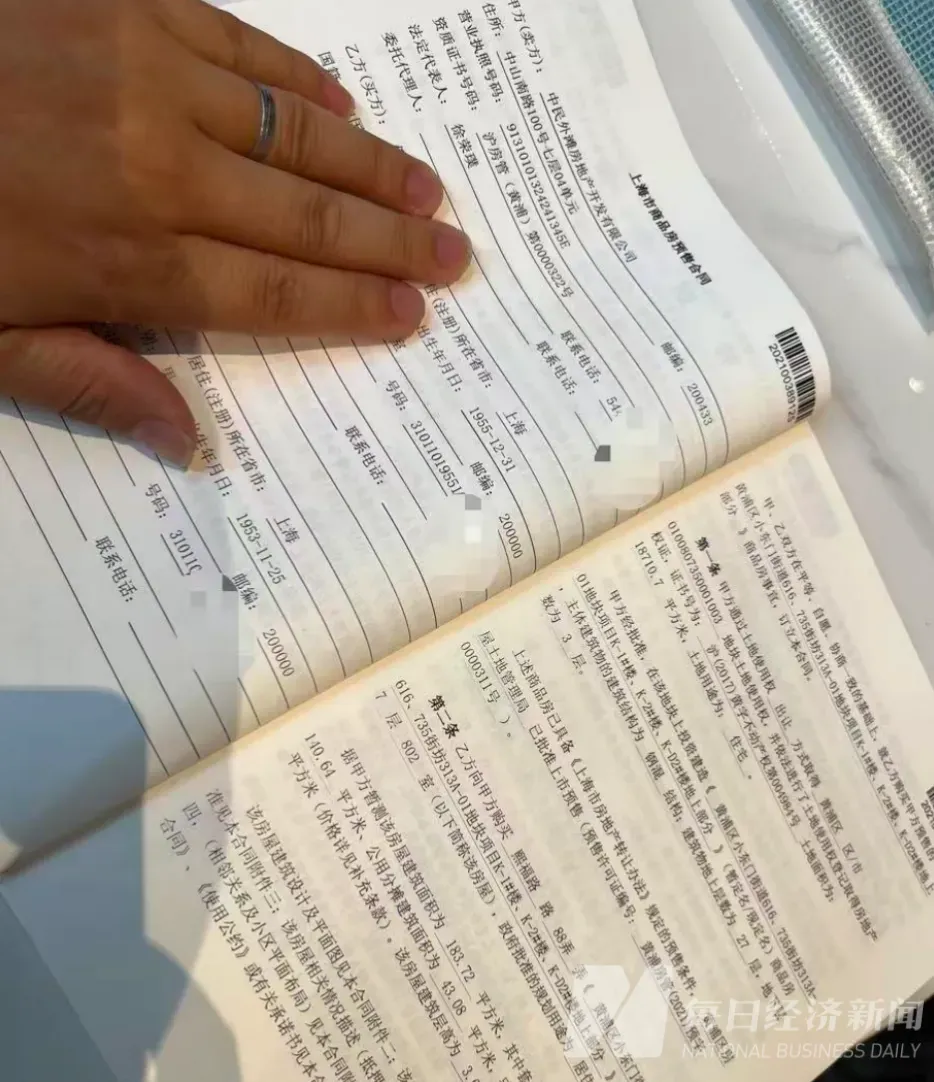 上海市商品房预售合同
202100389125
甲方(卖方): 中民外滩房地产开发有限公司
住所: 中山南路100号七层04单元 邮编: 200433
营业执照号码: 91310101324241345E
资质证书号码: 沪房管(黄浦)第0000322号 联系电话: 54
法定代表人: 徐荣璞 联系电话:
委托代理人:
乙方(买方):
国籍
住(注册)所在省市: 上海
出生年月日: 1955-12-31 邮编: 200000
号码: 3101101955
联系电话:
居住(注册)所在省市: 上海
年月日: 1953-11-25 邮编: 200000
号码: 31011
联系电话:
甲、乙双方在平等、自愿、协商一致的基础上,就乙方购买甲方预售的
黄浦区小东门街道616、735街坊313A-01地块项目K-1#楼、K-2#楼、K-D2#楼地上
部分 》商品房事宜,订立本合同。
第一条 甲方通过土地使用权 出让 方式取得 黄浦区 区/市
0100807350001003 地块土地使用权,并依法进行了土地使用权登记取得房地产
权证,证书号为: 沪(2017)黄字不动产权第00496号 土地面积为:
18710.7 平方米,土地用途为: 住宅 。
甲方经批准,在该地块上投资建造《 黄浦区小东门街道616、735街坊313A-
01地块项目K-1#楼、K-2#楼、K-D2#楼地上部分 》(暂定名/现定名)商品房
,主体建筑物的建筑结构为 钢混 结构;建筑物地上层数为 27 层,地
数为 3 层。
上述商品房已具备《上海市房地产转让办法》规定的预售条件,
屋土地管理局 已批准上市预售(预售许可证编号: 黄浦房管(2021)预字
0000311号 )。
第二条 乙方向甲方购买 熙福路 路 88弄 弄《 黄浦区小东门
616、735街坊313A-01地块项目K-1#楼、K-2#楼、K-D2#楼地上部分
7 层 802 室(以下简称该房屋),政府批准的规划用途为 居住
据甲方暂测该房屋建筑面积为 183.72 平方米,其中
140.64 平方米、公用分摊建筑面积为 43.08 平方米,
平方米(价格详见补充条款)。该房屋建筑层高为 3.
该房屋建筑设计及平面图见本合同附件二;该
准见本合同附件三;该房屋相关情况描述(抵押
四;(相邻关系及小区平面布局)见本合同附
合同》、《使用公约》或有关承诺书见本合
每日经济新闻
NATIONAL BUSINESS DAILY